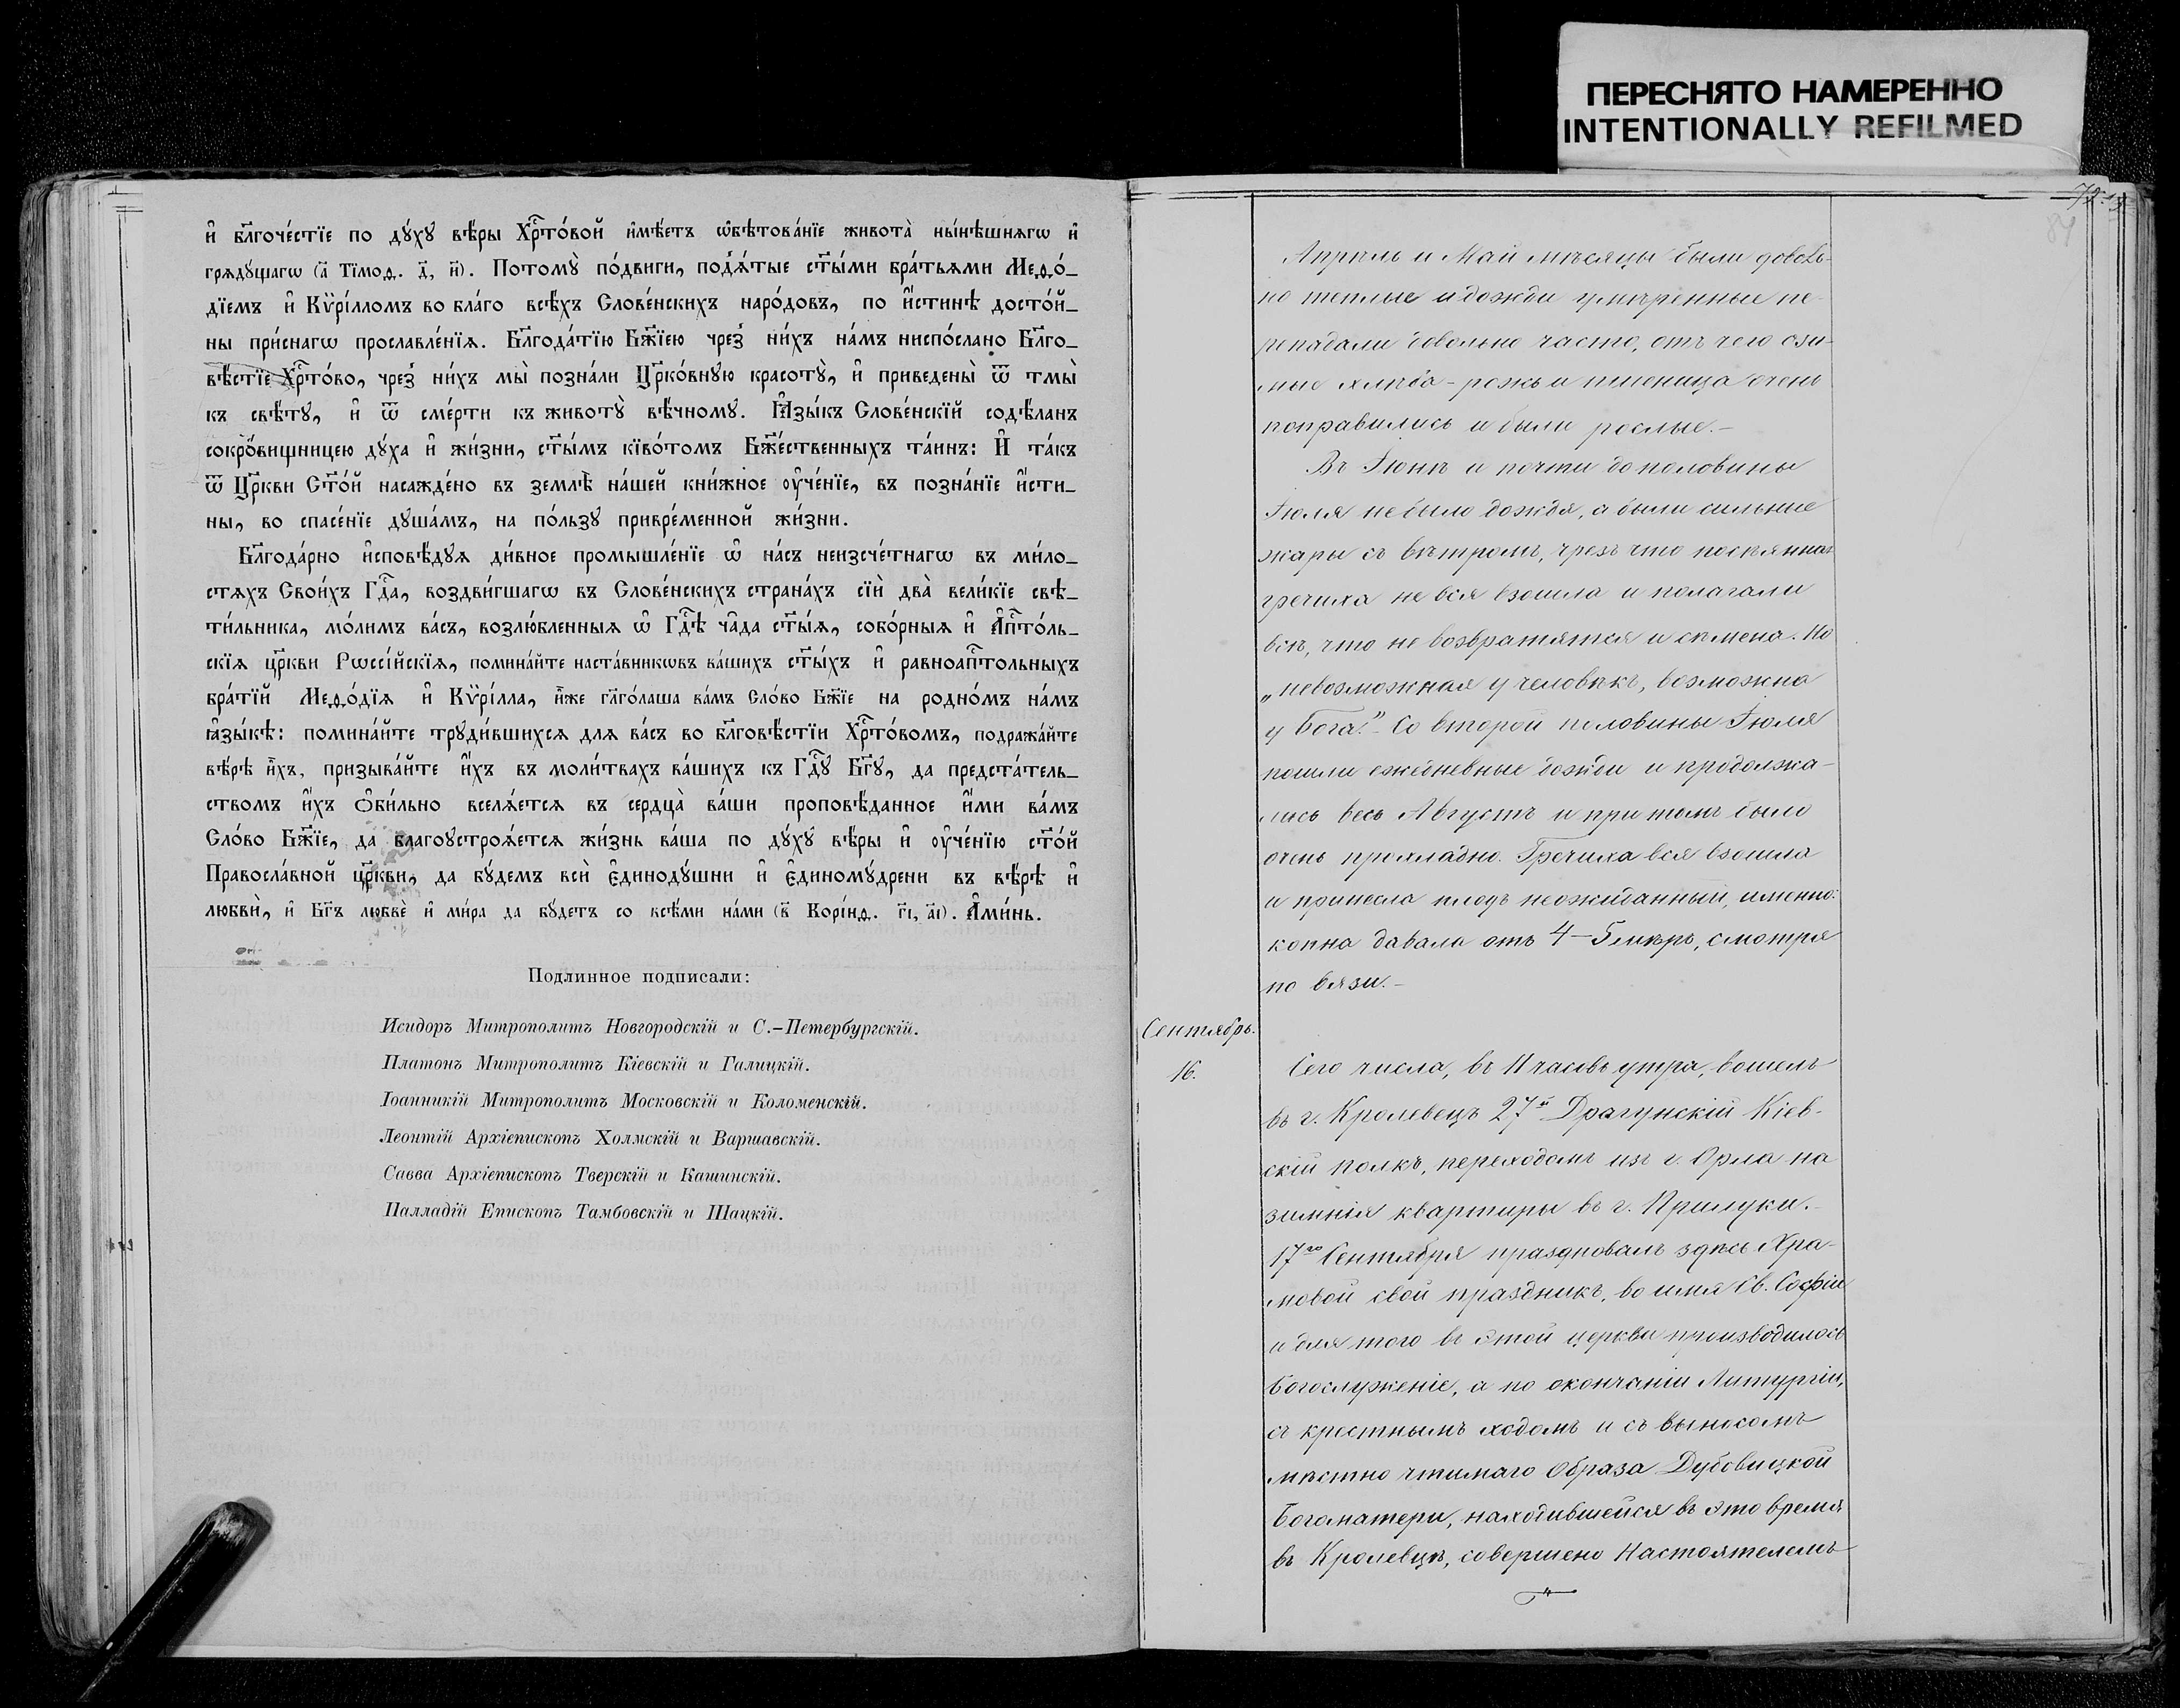 ПЕРЕСНЯТО НАМЕРЕННО
INTENTIONALLY REFILMED
и҆ бл҃гоче́стїе по дꙋ́хꙋ вѣ́ры Хрⷭ҇то́вой и҆мѣ́етъ ѡ҆бѣтова́нїе живота̀ ны́нѣшнягѡ и҆
грядꙋщагѡ (а҃ Тїмоѳ. д҃, и҃). Потомꙋ̀ по́двиги, под̾ѧ́тые ст҃ы́ми бра́тьями Меѳо́-
дїемъ и҆ Кѷрі́лломъ во бла́го всѣ́хъ Слове́нскихъ наро́довъ, по и҆́стинѣ досто́й-
ны при́снагѡ прославле́нїѧ. Бл҃года́тїю Бж҃їею чрез̾ ни́хъ на́мъ ниспо́слано Бл҃го-
вѣ́стїе Хрⷭ҇то́во, чрез̾ ни́хъ мы̀ позна́ли Цр҃ко́внꙋю красотꙋ̀, и҆ приведены̀ ѿ тмы̀
къ свѣ́тꙋ, и҆ ѿ сме́рти къ животꙋ̀ вѣ́чномꙋ. Ꙗ҆зы́къ Слове́нскїй содѣ́ланъ
сокро́вищницею дꙋ́ха и҆ жи́зни, ст҃ы́мъ кїво́томъ Бж҃е́ственныхъ та́инъ: И҆ та́къ
ѿ Цр҃кви Ст҃о́й насажде́но въ землѣ̀ на́шей кни́жное ᲂу҆че́нїе, въ позна́нїе и҆́сти-
ны, во спасе́нїе дꙋша́мъ, на по́льзꙋ привре́менной жи́зни.
Бл҃года́рно и҆сповѣ́дꙋѧ ди́вное промышле́нїе ѡ҆ на́съ неизсче́тнагѡ въ ми́ло-
стяхъ Свои́хъ Гдⷭ҇а, воздви́гшагѡ въ Слове́нскихъ страна́хъ сїѝ два̀ вели́кїе свѣ-
ти́льника, мо́лимъ ва́съ, возлю́бленныѧ ѡ҆ Гдⷭ҇ѣ ча̑да ст҃ы́ѧ, собо́рныѧ и҆ А҆пⷭ҇то́ль-
скїѧ цр҃кви Рѡссі́йскїѧ, помина́йте наста́вникѡвъ ва́шихъ ст҃ы́хъ и҆ равноапⷭ҇тольныхъ
бра́тїй Меѳо́дїѧ и҆ Кѷрі́лла, и҆̀же гл҃го́лаша ва́мъ Сло́во Бж҃їе на родно́мъ на́мъ
ꙗ҆зы́кѣ: помина́йте трꙋди́вшихся для ва́съ во бл҃говѣ́стїи Хрⷭ҇то́вомъ, подража́йте
вѣ́рѣ и҆́хъ, призыва́йте и҆́хъ въ моли́твахъ ва́шихъ къ Гдⷭ҇ꙋ Бг҃ꙋ, да предста́тель-
ствомъ и҆́хъ ѻ҆би́льно вселѧ́ется въ сердца̀ ва́ши проповѣ́данное и҆́ми ва́мъ
Сло́во Бж҃їе, да благоꙋстроѧ́ется жи́знь ва́ша по дꙋ́хꙋ вѣ́ры и҆ ᲂу҆че́нїю ст҃о́й
Правосла́вной цр҃кви, да бꙋ́демъ всѝ Є҆динодꙋ́шни и҆ Є҆диномꙋ́дрени въ вѣ́рѣ и҆
любвѝ, и҆ Бг҃ъ любвѐ и҆ ми́ра да бꙋ́детъ со всѣ́ми на́ми (в҃ Корі́нѳ. г҃і, а҃і). А҆ми́нь.
Подлинное подписали:
Исидоръ Митрополитъ Новгородскій и С.-Петербургскій.
Платонъ Митрополитъ Кіевскій и Галицкій.
Іоанникій Митрополитъ Московскій и Коломенскій.
Леонтій Архіепископъ Холмскій и Варшавскій.
Савва Архіепископъ Тверскій и Кашинскій.
Палладій Епископъ Тамбовскій и Шацкій.
84
Апрѣль и Май мѣсяцы были доволь-
но теплые и дожди умѣренные пе-
репадали довольно часто, отъ чего ози-
мые хлѣба - рожь и пшеница очень
поправились и были рослые.-
Въ Іюнѣ и почти до половины
Іюля небыло дождя, а были сильные
жары съ вѣтромъ, чрезъ что посѣянная
гречиха не вся взошла и полагали
всѣ, что не возвратятся и сѣмена. Но
„невозможная у человѣкъ, возможна
у Бога." Со второй половины Іюля
пошли ежедневные дожди и продолжа-
лись весь Августъ и при томъ было
очень прохладно. Гречиха вся взошла
и принесла плодъ неожиданный, именно:
копна давала отъ 4-5 мѣръ, смотря
по вязи.-
Сентябрь.
16.
Сего числа, въ 11 часовъ утра, вошелъ
въ г. Кролевецъ 27й Драгунскій Кіев-
скій полкъ, переходомъ изъ г. Орла на
зимнія квартиры въ г. Прилуки.-
17го Сентября праздновалъ здѣсь Хра-
мовой свой праздникъ, во имя Св. Софіи
и для того въ этой церкви производилось
Богослуженіе, а по окончаніи Литургіи,
съ крестнымъ ходомъ и съ выносомъ
мѣстно чтимаго Образа Дубовицкой
Богоматери, находившейся въ это время
въ Кролевцѣ, совершено Настоятелемъ